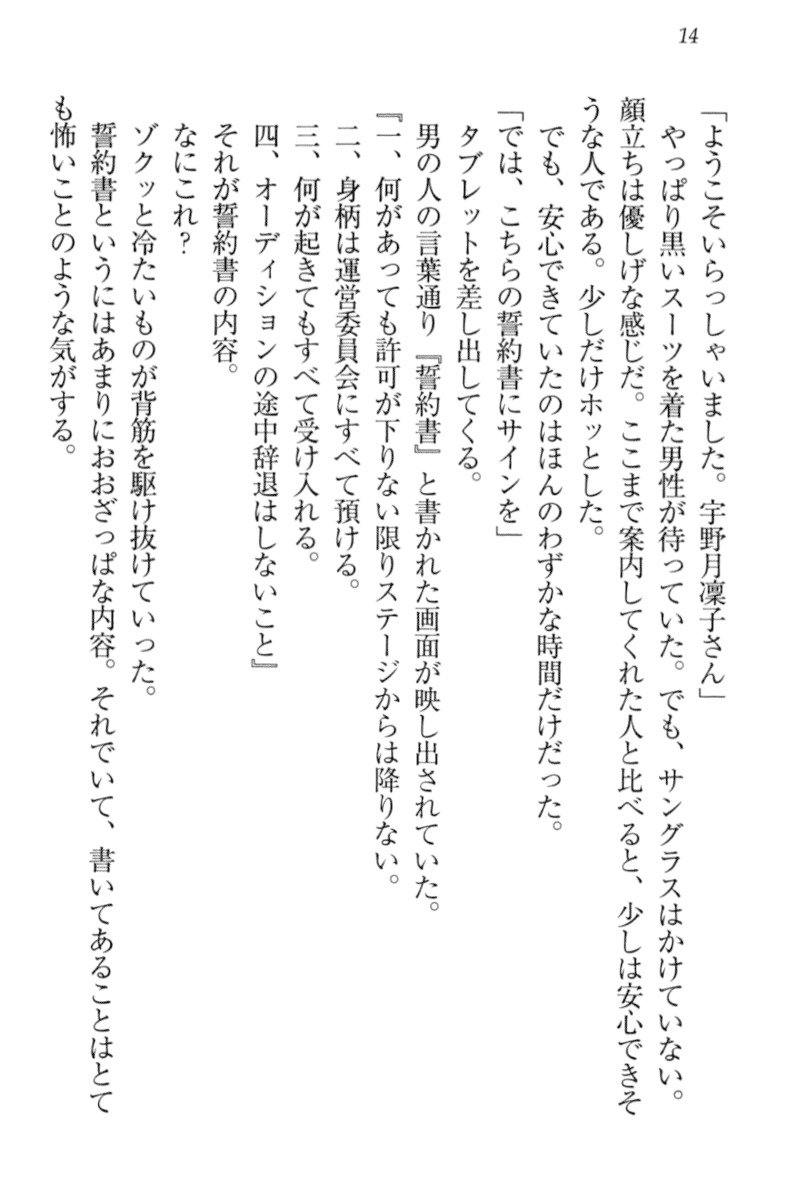 14
「ようこそいらっしゃいました。宇野月凜子さん」
やっぱり黒いスーツを着た男性が待っていた。でも、サングラスはかけていない。
顔立ちは優しげな感じだ。ここまで案内してくれた人と比べると、少しは安心できそ
うな人である。少しだけホッとした。
でも、安心できていたのはほんのわずかな時間だけだった。
「では、こちらの誓約書にサインを」
タブレットを差し出してくる。
男の人の言葉通り『誓約書』と書かれた画面が映し出されていた。
『一、何があっても許可が下りない限りステージからは降りない。
二、身柄は運営委員会にすべて預ける。
三、何が起きてもすべて受け入れる。
四、オーディションの途中辞退はしないこと』
それが誓約書の内容。
なにこれ？
ゾクッと冷たいものが背筋を駆け抜けていった。
誓約書というにはあまりにおおざっぱな内容。それでいて、書いてあることはとて
も怖いことのような気がする。